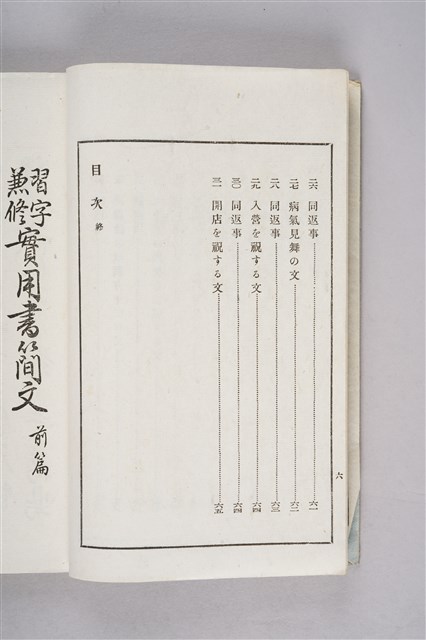 六
二六 同返事 六一
二七 病氣見舞の文 六二
二八 同返事 六三
二九 入營を祝する文 六四
三〇 同返事 六四
三一 開店を祝する文 六五
目次 終
習字
兼修
實用書簡文 前篇